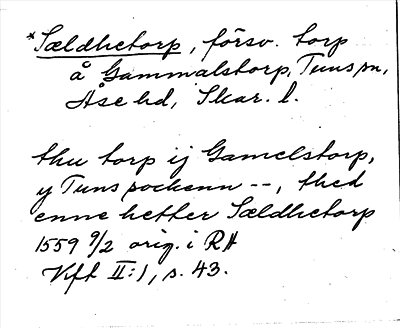 *Sældhetorp, försv. torp
å Gammalstorp, Tuns sn,
Åse hd, Skar. l.
thu torp ij Gamelstorp,
y Tuns sockenn --, thed
enne hether Sældhetorp
1559 9/2 orig. i RA
Vft II:1, s. 43.